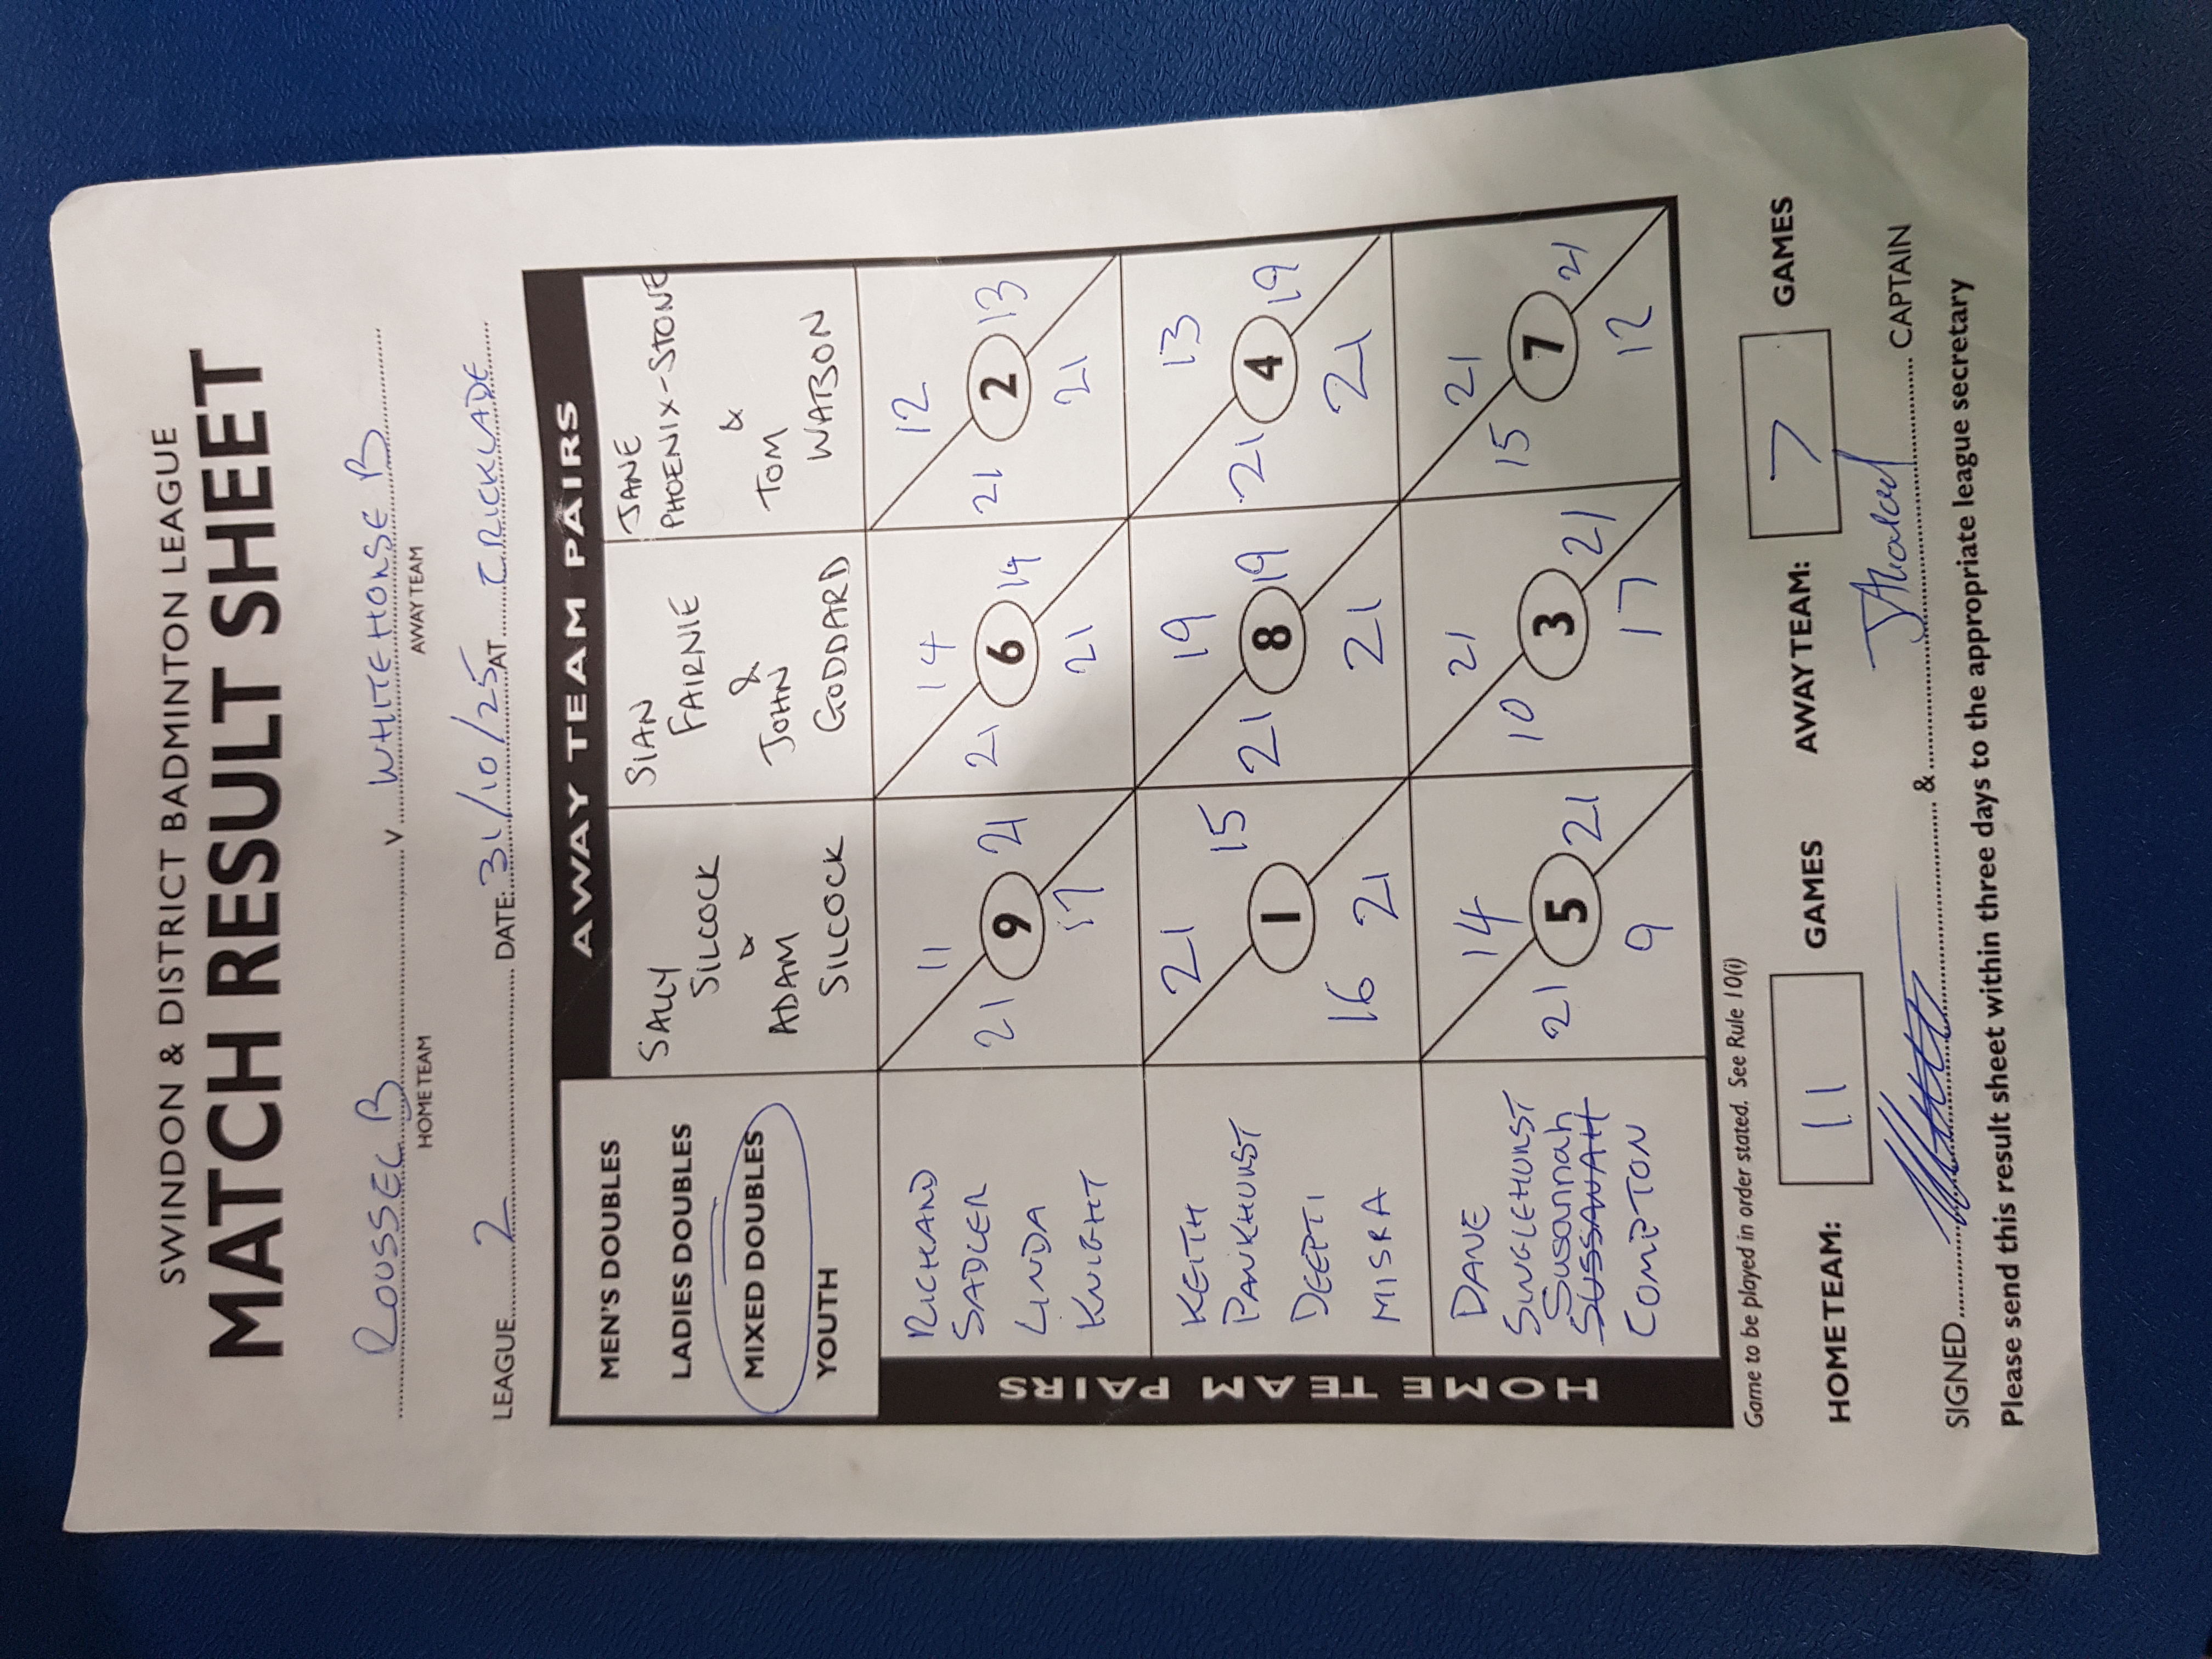 SWINDON & DISTRICT BADMINTON LEAGUE
MATCH RESULT SHEET
ROUSSEL B v WHITEHORSE B
HOME TEAM AWAY TEAM
LEAGUE 2 DATE: 31/10/25 AT CRICKLADE
AWAY TEAM PAIRS
MEN'S DOUBLES
LADIES DOUBLES
MIXED DOUBLES
YOUTH
SALLY
SILCOCK
&
ADAM
SILCOCK
SIAN
FAIRNIE
&
JOHN
GODDARD
JANE
PHOENIX-STONE
&
TOM
WATSON
HOME TEAM PAIRS
RICHARD
SADLER
LINDA
KNIGHT
11
21 9 21
17
14
21 6 14
21
12
21 2 13
21
KEITH
PANKHURST
DEEPTI
MISRA
21 15
1
16 21
19
21 8 19
21
13
21 4 19
21
DANE
SINGLEHURST
Susannah
SUSSANAH
COMPTON
14
21 5 21
9
21
10 3 21
17
21
15 7 21
12
Game to be played in order stated. See Rule 10(i)
HOME TEAM: 11 GAMES AWAY TEAM: 7 GAMES
SIGNED & CAPTAIN
Please send this result sheet within three days to the appropriate league secretary